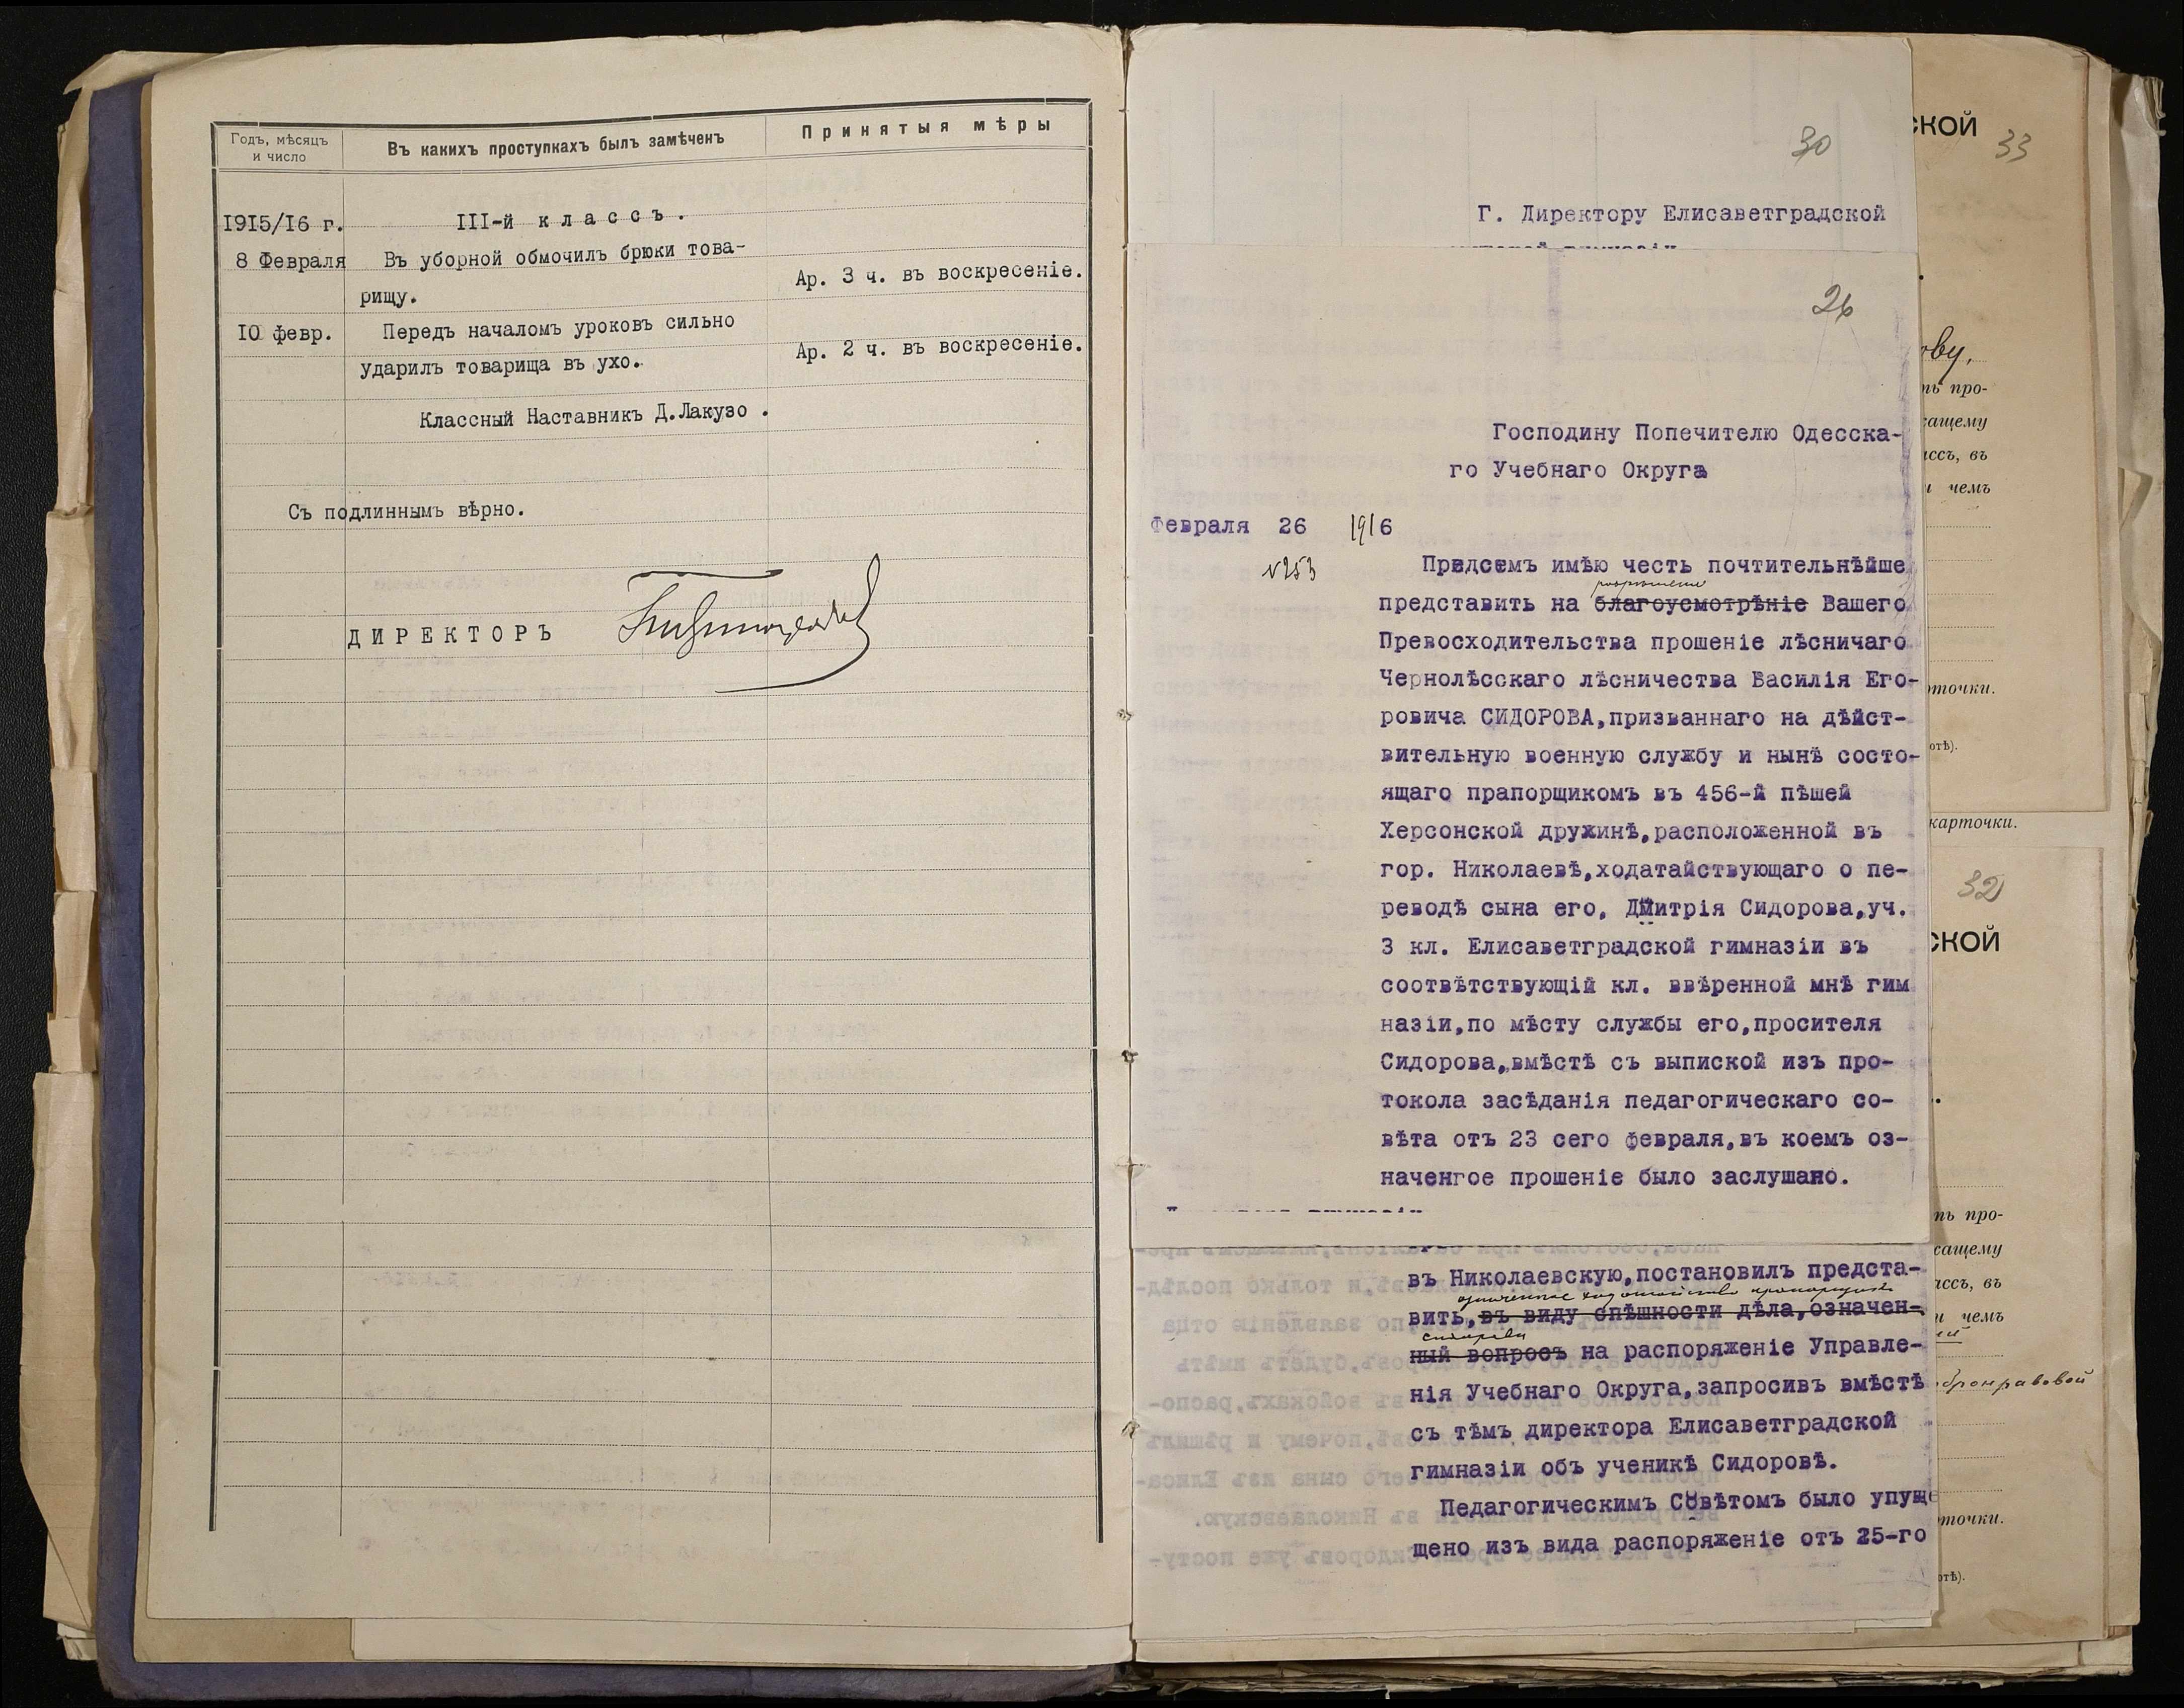 Годъ, мѣсяцъ
и число
Въ какихъ проступкахъ былъ замѣченъ
Принятыя мѣры
1915/16 г.
III-й классъ.
8 Февраля
Въ уборной обмочилъ брюки това-
рищу.
Ар. 3 ч. въ воскресеніе.
10 февр.
Передъ началомъ уроковъ сильно
ударилъ товарища въ ухо.
Ар. 2 ч. въ воскресеніе.
Классный Наставникъ Д.Лакузо .
Съ подлиннымъ вѣрно.
ДИРЕКТОРЪ
30
Г. Директору Елисаветградской
26
Господину Попечителю Одесска-
го Учебнаго Округа
Февраля 26 1916
№253
Предсемъ имѣю честь почтительнѣйше
разрѣшеніе
представить на благоусмотрѣніе Вашего
Превосходительства прошеніе лѣсничаго
Чернолѣсскаго лѣсничества Василія Его-
ровича СИДОРОВА,призваннаго на дѣйст-
вительную военную службу и нынѣ состо-
ящаго прапорщикомъ въ 456-й пѣшей
Херсонской дружинѣ,расположенной въ
гор. Николаевѣ,ходатайствующаго о пе-
реводѣ сына его, Дмитрія Сидорова,уч.
3 кл. Елисаветградской гимназіи въ
соотвѣтствующій кл. ввѣренной мнѣ гим
назіи,по мѣсту службы его,просителя
Сидорова,вмѣстѣ съ выпиской изъ про-
токола засѣданія педагогическаго со-
вѣта отъ 23 сего февраля,въ коемъ оз-
наченгое прошеніе было заслушано.
въ Николаевскую,постановилъ предста-
означенное ходатайство прапорщика
вить,въ виду спѣшности дѣла,означен-
Сидорова
ный вопросъ на распоряженіе Управле-
нія Учебнаго Округа,запросивъ вмѣстѣ
съ тѣмъ директора Елисаветградской
гимназіи объ ученикѣ Сидоровѣ.
Педагогическимъ Совѣтомъ было упуще
щено изъ вида распоряженіе отъ 25-го
ской
33
ову,
ть про-
сащему
ассъ, въ
и чемъ
рточки.
отѣ).
карточки.
32
ской
ть про-
сащему
ассъ, въ
и чемъ
рточки.
отѣ).